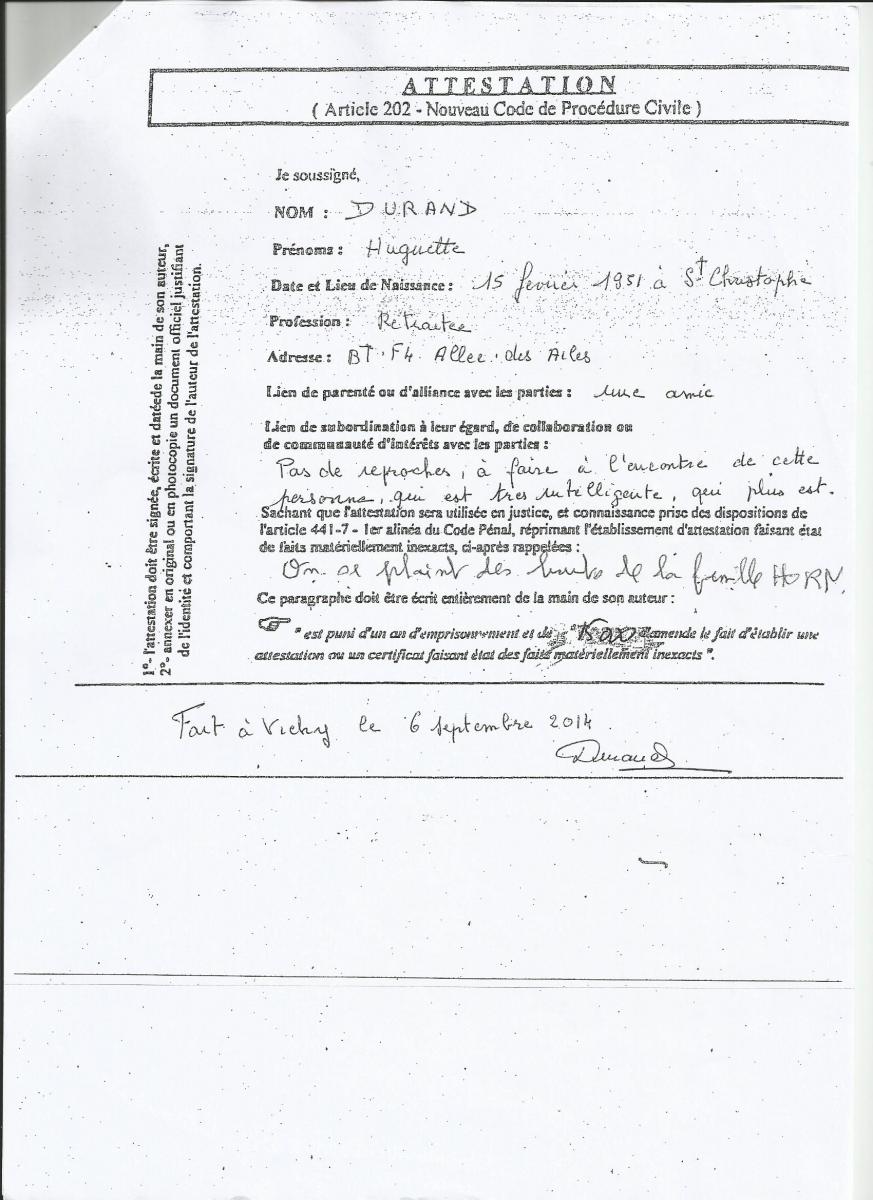 ATTESTATION
( Article 202 - Nouveau Code de Procédure Civile )
Je soussigné,
NOM : DURAND
Prénoms : Huguette
Date et Lieu de Naissance : 15 fevrier 1951 à St Christophe
Profession : Retraitee
Adresse : BT. F4. Allee. des Ailes
Lien de parenté ou d'alliance avec les parties : une amie
Lien de subordination à leur égard, de collaboration ou
de communauté d'intérêts avec les parties :
Pas de reproches, à faire à l'encontre de cette
personne, qui est tres intelligente, qui plus est.
Sachant que l'attestation sera utilisée en justice, et connaissance prise des dispositions de
l'article 441-7 - 1er alinéa du Code Pénal, réprimant l'établissement d'attestation faisant état
de faits matériellement inexacts, ci-après rappelées :
On se plaint des bruits de la famille HORN.
Ce paragraphe doit être écrit entièrement de la main de son auteur :
" est puni d'un an d'emprisonnement et de d'amende le fait d'établir une
attestation ou un certificat faisant état des faits matériellement inexacts ".
1°- l'attestation doit être signée, écrite et datéede la main de son auteur,
2°- annexer en original ou en photocopie un document officiel justifiant
de l'identité et comportant la signature de l'auteur de l'attestation.
Fait à Vichy le 6 septembre 2014
Durand